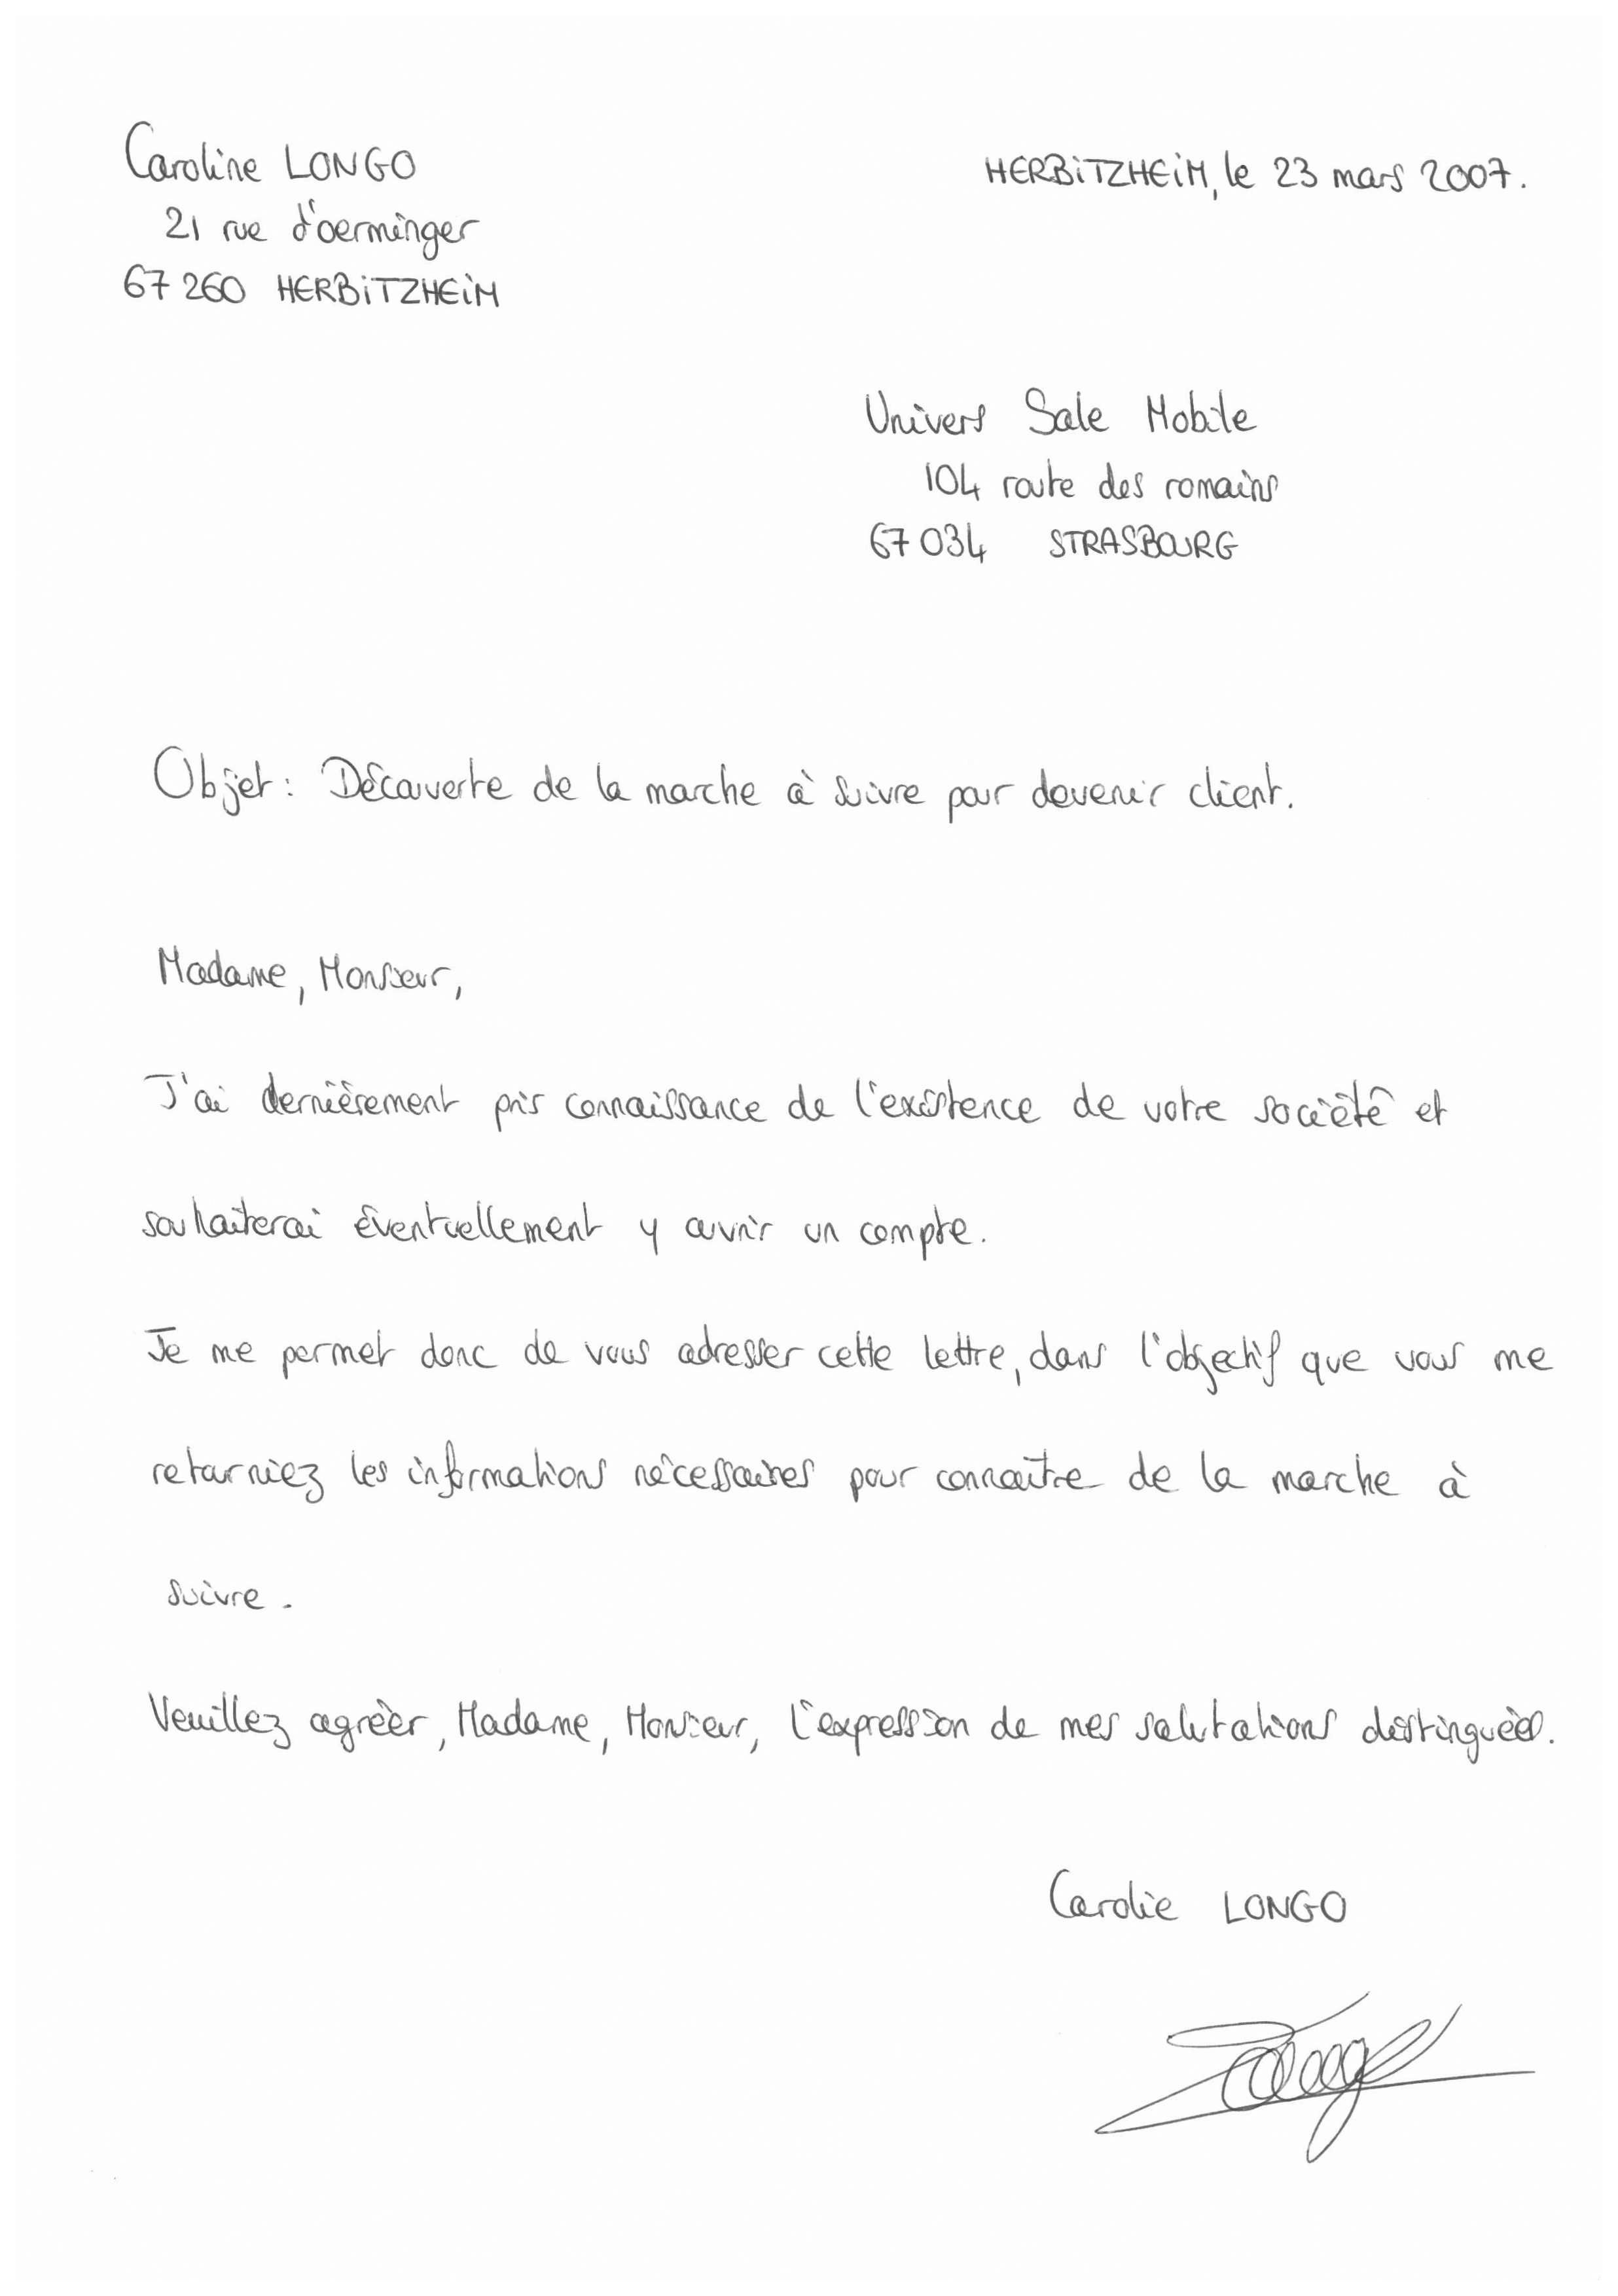 Caroline LONGO
HERBITZHEIM, le 23 mars 2007.
21 rue d'oerminger
67 260 HERBITZHEIM
Univers Sale Mobile
104 route des romains
67 034 STRASBOURG
Objet : Découverte de la marche à suivre pour devenir client.
Madame, Monsieur,
J'ai dernièrement pris connaissance de l'existence de votre société et
souhaiterai éventuellement y ouvrir un compte.
Je me permet donc de vous adresser cette lettre, dans l'objectif que vous me
retourniez les informations nécessaires pour connaître de la marche à
suivre.
Veuillez agréer, Madame, Monsieur, l'expression de mes salutations distinguées.
Carolie LONGO